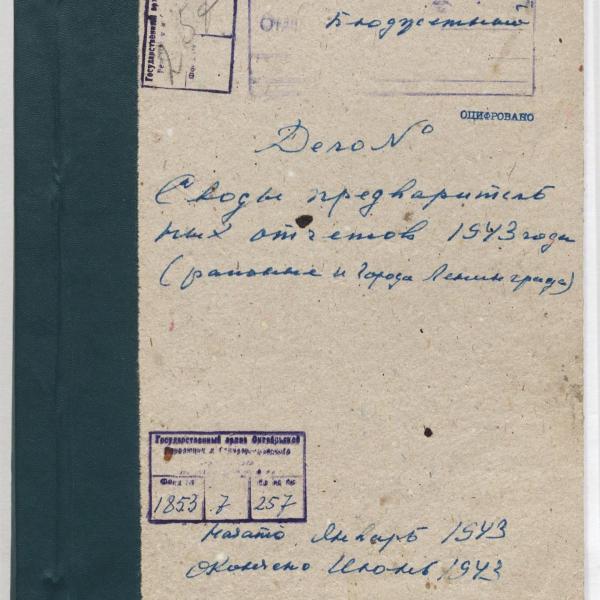 Государственный арх
Отд
Бюджетный
ОЦИФРОВАНО
Дело №
Своды предваритель
ных отчетов 1943 года
(районные и города Ленинграда)
Государственный архив Октябрьской
революции и
Фонд №
1853 7 257
Начато Январь 1943
Окончено Июнь 1943